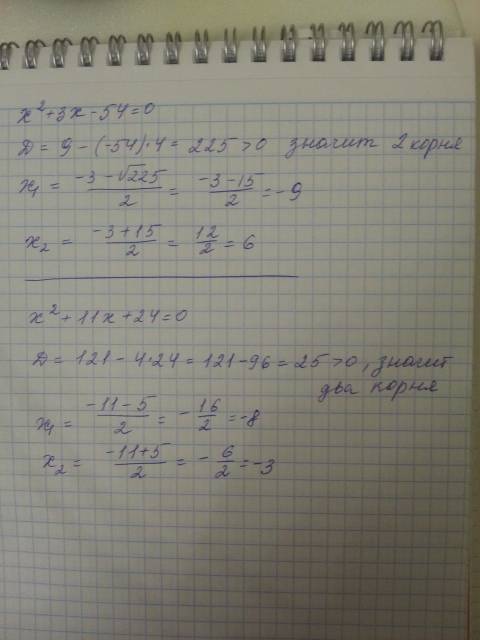 x²+3x-54=0
D = 9 - (-54)·4 = 225 >0 значит 2 корня
x₁ = (-3-√225)/2 = (-3-15)/2 = -9
x₂ = (-3+15)/2 = 12/2 = 6
x²+11x+24=0
D = 121 - 4·24 = 121-96 = 25 >0, значит
два корня
x₁ = (-11-5)/2 = -16/2 = -8
x₂ = (-11+5)/2 = -6/2 = -3